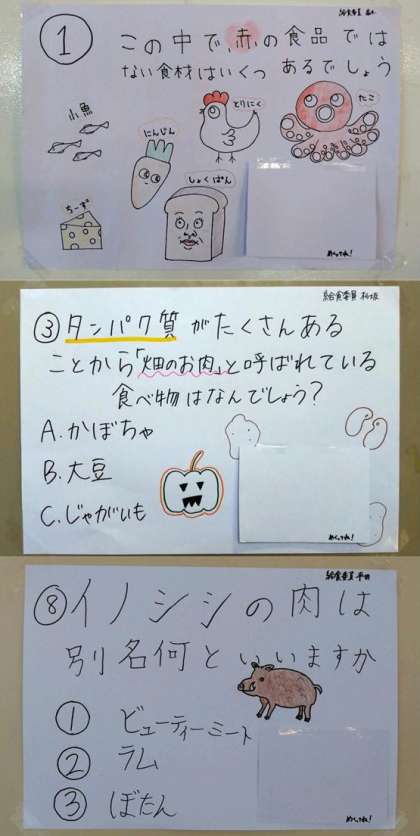 給食委員
① この中で、赤の食品では
ない食材はいくつ あるでしょう
小魚
にんじん
とりにく
たこ
ちーず
しょくぱん
めくってね！
給食委員
③ タンパク質がたくさんある
ことから「畑のお肉」と呼ばれている
食べ物はなんでしょう？
A.かぼちゃ
B.大豆
C.じゃがいも
めくってね！
給食委員
⑧イノシシの肉は
別名何といいますか
① ビューティーミート
② ラム
③ ぼたん
めくってね！